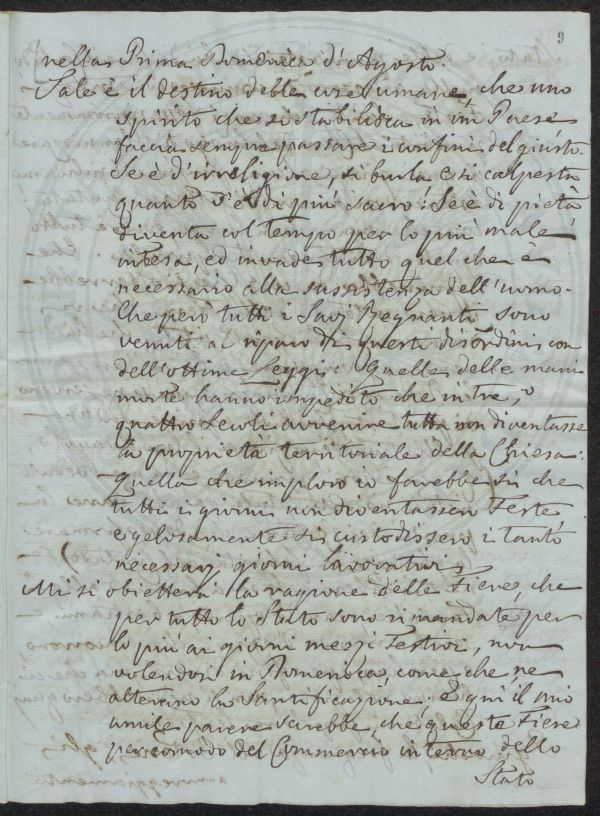 9
nella Prima Domenica d'Agosto.
Tale è il destino delle cose umane, che uno
spirito che si stabilisca in un Paese
faccia sempre passare i confini del giusto.
Se è d'irreligione, si burla e si calpesta
quanto v'è di più sacro: Se è di pietà
diventa col tempo per lo più male
intesa, ed invade tutto quel che è
necessario alla sussistenza dell'uomo.
Che però tutti i Savj Regnanti sono
venuti al riparo di questi disordini con
dell'ottime Leggi: Quelle delle mani
morte hanno impedito che in tre, o
quattro Secoli avvenire tutta non diventasse
la proprietà territoriale della Chiesa:
Quella che imploro io farebbe sì che
tutti i giorni non diventassero Feste
e gelosamente si custodissero i tanto
necessarj giorni lavorativi.
Mi si obietterà la ragione delle Fiere, che
per tutto lo Stato sono rimandate per
lo più ai giorni mezzi Festivi, non
volendosi in Domenica, come che ne
alterino la Santificazione; E qui il mio
umile parere sarebbe, che queste Fiere
per comodo del Commercio interno dello
Stato